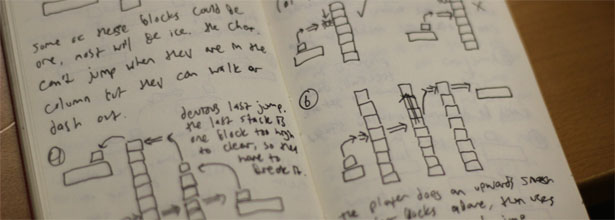 some of these blocks could be
one, most will be ice. the char.
can't jump when they are in the
column but they can walk or
dash out.
devious last jump.
the last stack is
one block too high
to clear, so they
have to
break it.
(or
x
6
the player does an upwards smash
blocks above, then uses